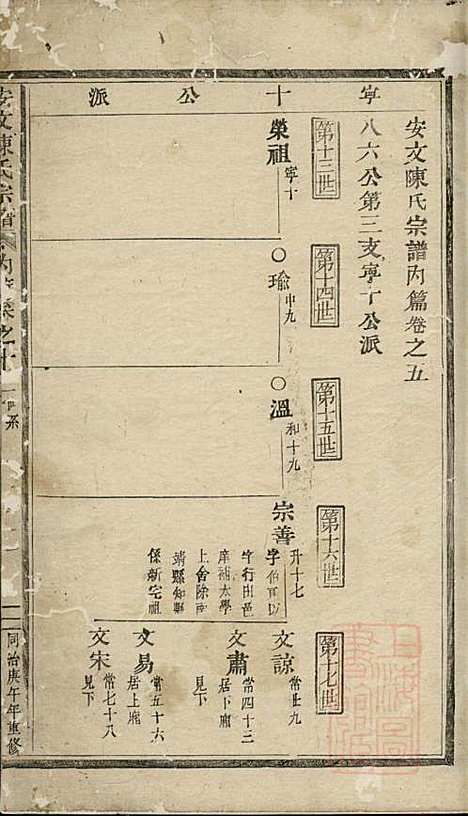 安文陳氏宗譜丙篇卷之五
八六公第三支寧十公派
寧十公派
第十三世
第十四世
第十五世
第十六世
第十七世
榮祖
寧十
○瑜
申九
○溫
和十九
宗善
升十七
字伯可以
字行田邑
庠補太學
上舍除南
靖縣知縣
係新宅祖
文諒
常廿九
文肅
常四十三
居下廂
見下
文易
常五十六
居上廂
見下
文宋
常七十八
見下
安文陳氏宗譜
丙
卷之十
系
同治庚午年重修